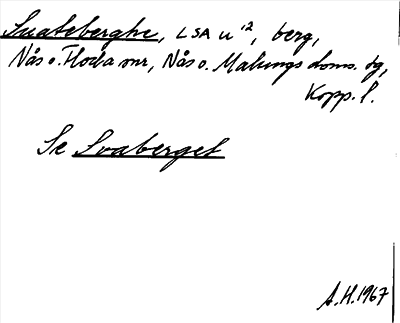 Suateberghe, LSA u'2, berg,
Nås o. Floda snr, Nås o. Malungs doms. dg,
Kopp. l.
Se Svaberget
A.H. 1967